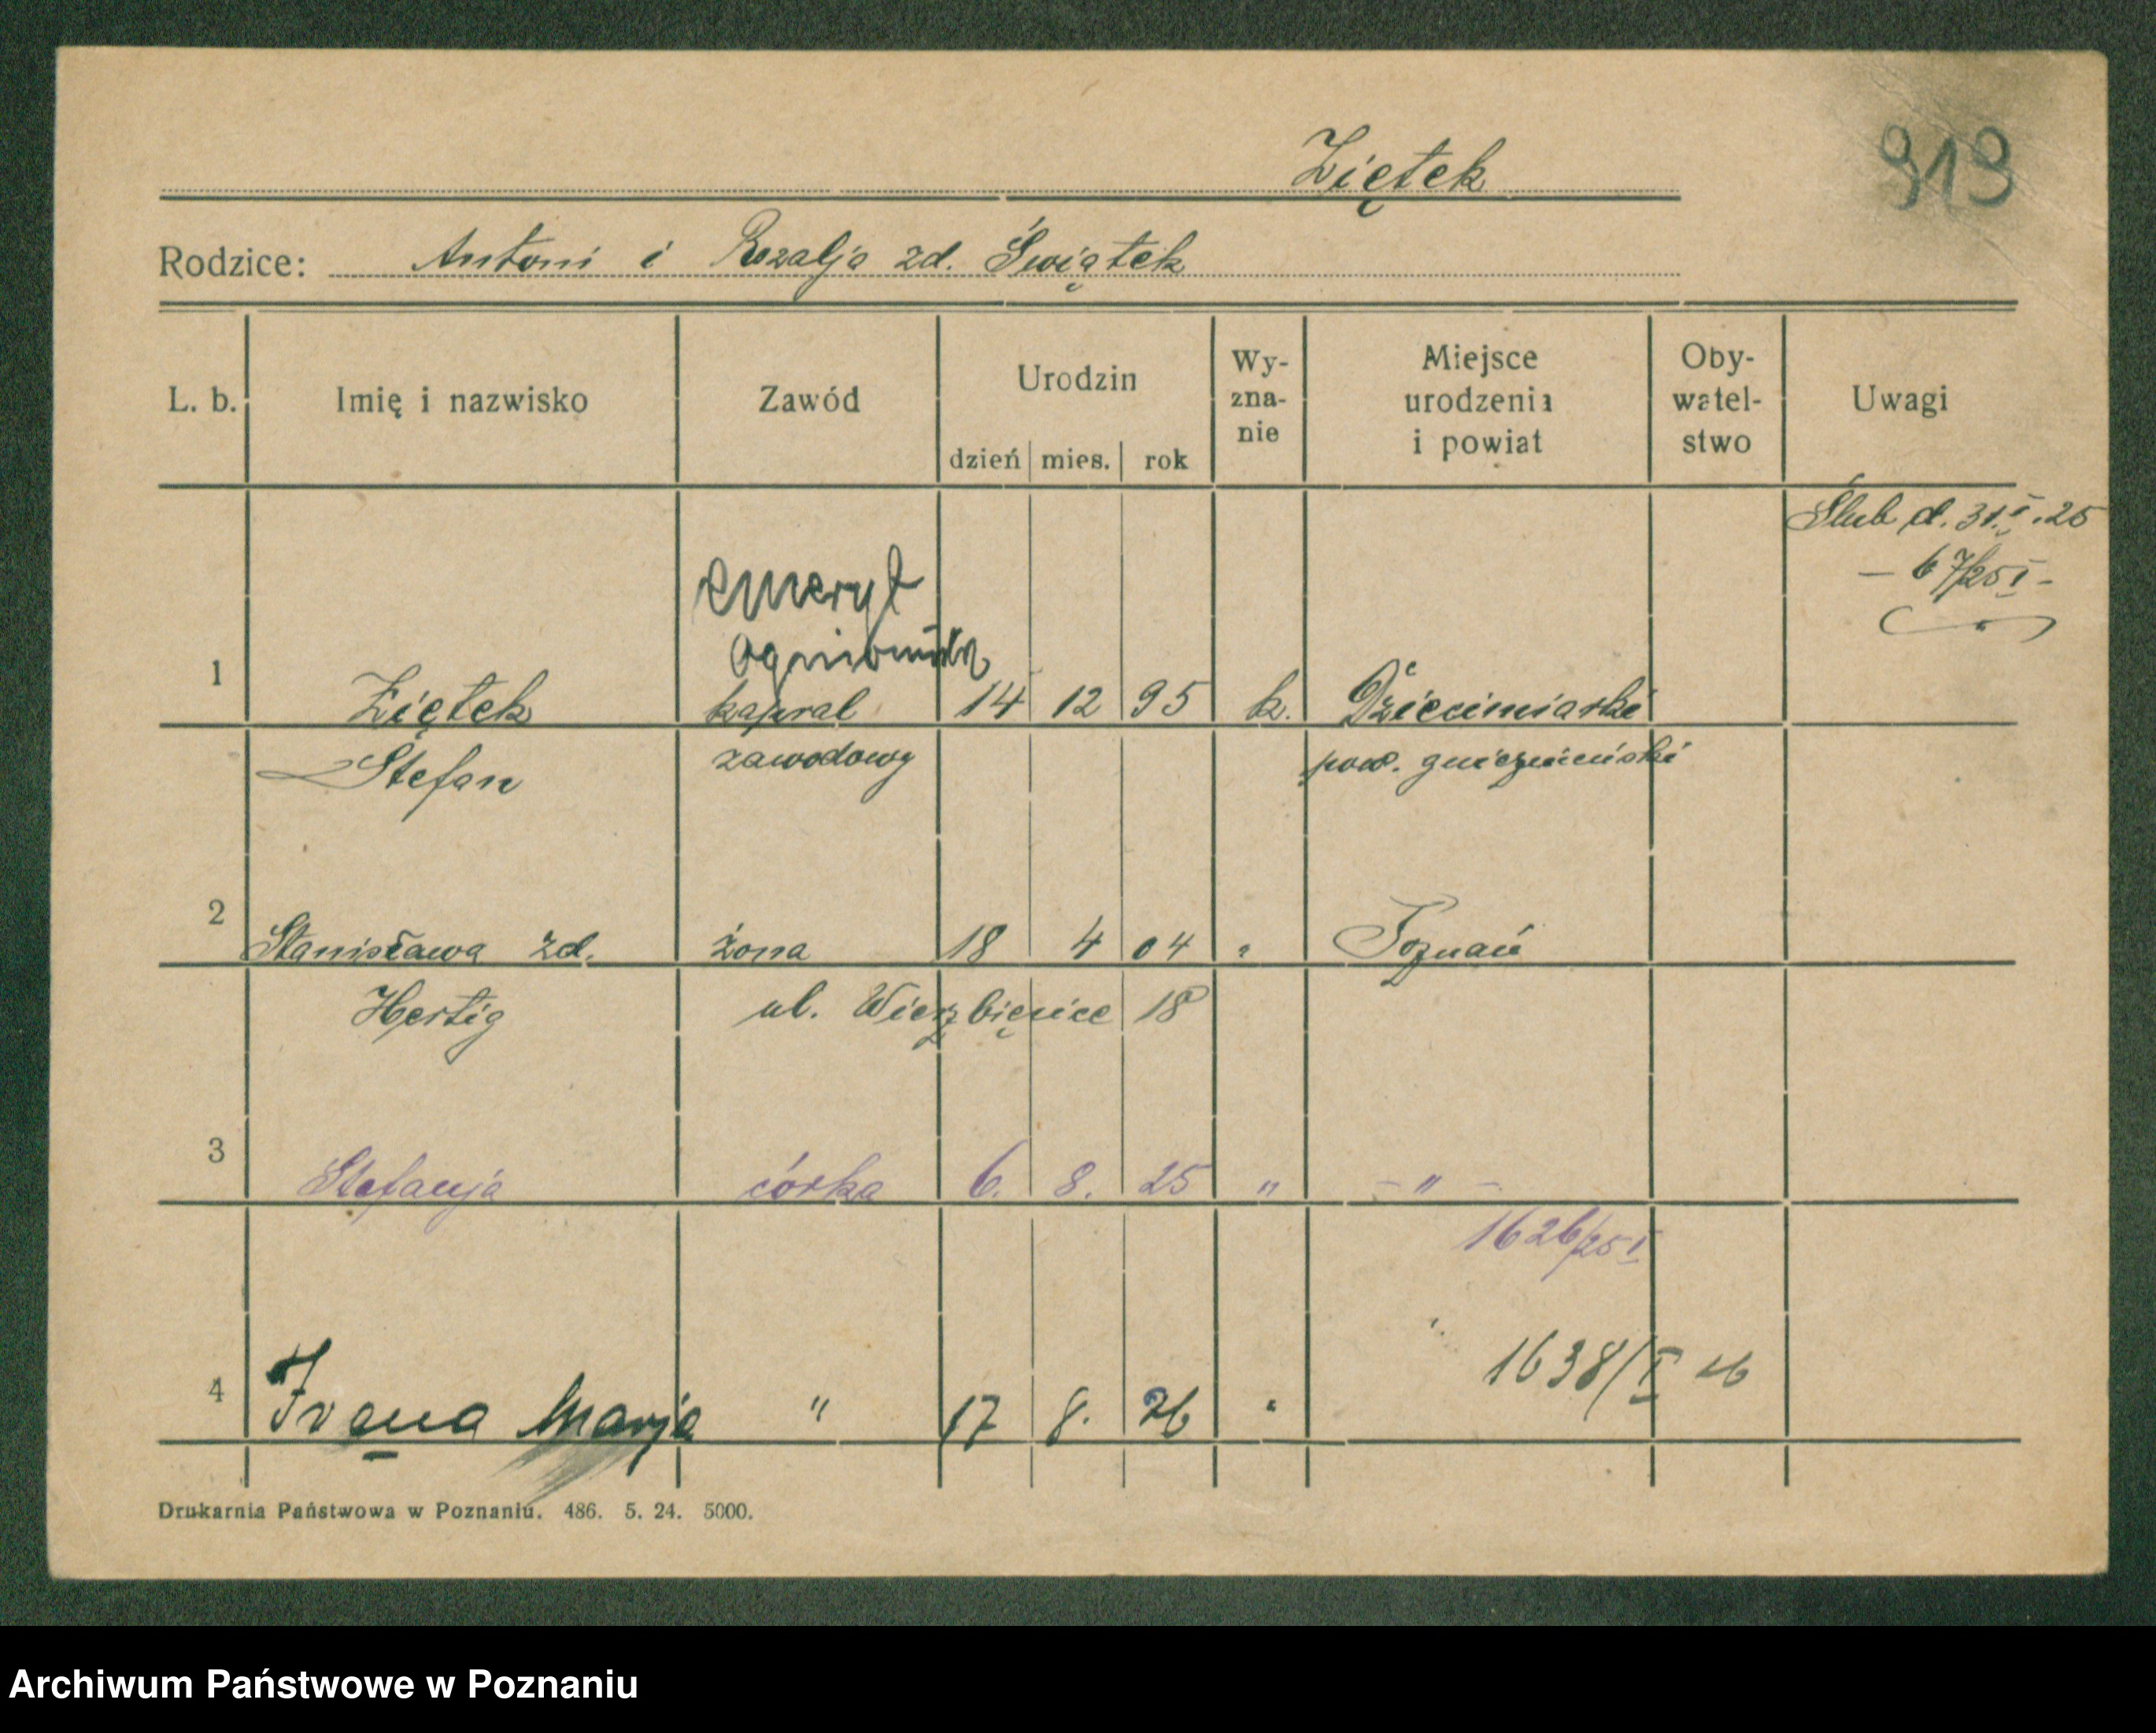 Ziętek
919
Rodzice: Antoni i Rozalja zd. Świątek
L. b. Imię i nazwisko Zawód Urodzin dzień mies. rok Wy-zna-nie Miejsce urodzenia i powiat Oby-watel-stwo Uwagi
Ślub d. 31.I.25
- 67/25 I -
emeryt
ogniomistrz
1 Ziętek kapral 14 12 95 k. Dziećmiarki
Stefan zawodowy pow. gnieźnieński
2 Stanisława zd. żona 18 4 04 " Poznań
Hertig ul. Wierzbięcice 18
3 Stefanja córka 6. 8. 25 " - " -
1626/25 I
1638/I 26
4 Irena Marja " 17 8. 26 "
Drukarnia Państwowa w Poznaniu. 486. 5. 24. 5000.
Archiwum Państwowe w Poznaniu